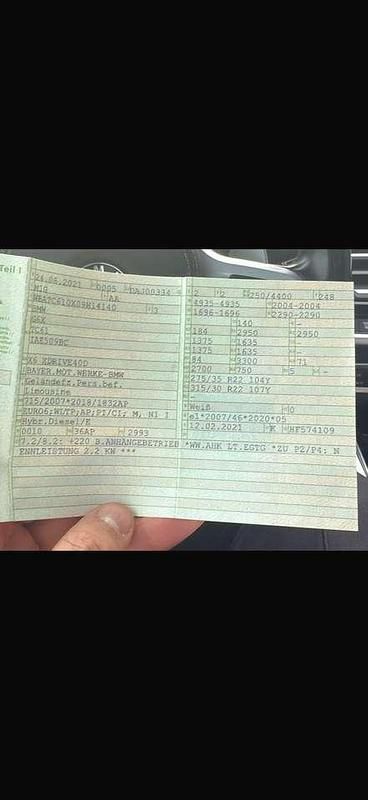 Teil I
24.06.2021 0005 DAJ00334 2 2 250/4400 248
M1G AA 4935-4935 2004-2004
WBA7C610X09H14140 3 1696-1696 2290-2290
BMW 140 -
G6X 184 2950 2950
7C61 1375 1635
1375 1635 -
84 3300 71
X6 XDRIVE40D 2700 750 5 -
BAYER.MOT.WERKE-BMW 275/35 R22 104Y
Geländefz.Pers.bef. 315/30 R22 107Y
Limousine -
715/2007*2018/1832AP Weiß 0
EURO6;WLTP;AP;PI/CI; M, N1 I e1*2007/46*2020*05
Hybr.Diesel/E 12.02.2021 K HF574109
0010 36AP 2993
7.2/8.2: +220 B.ANHÄNGEBETRIEB *WW.AHK LT.EGTG *ZU P2/P4: N
ENNLEISTUNG 2.2 KW ***